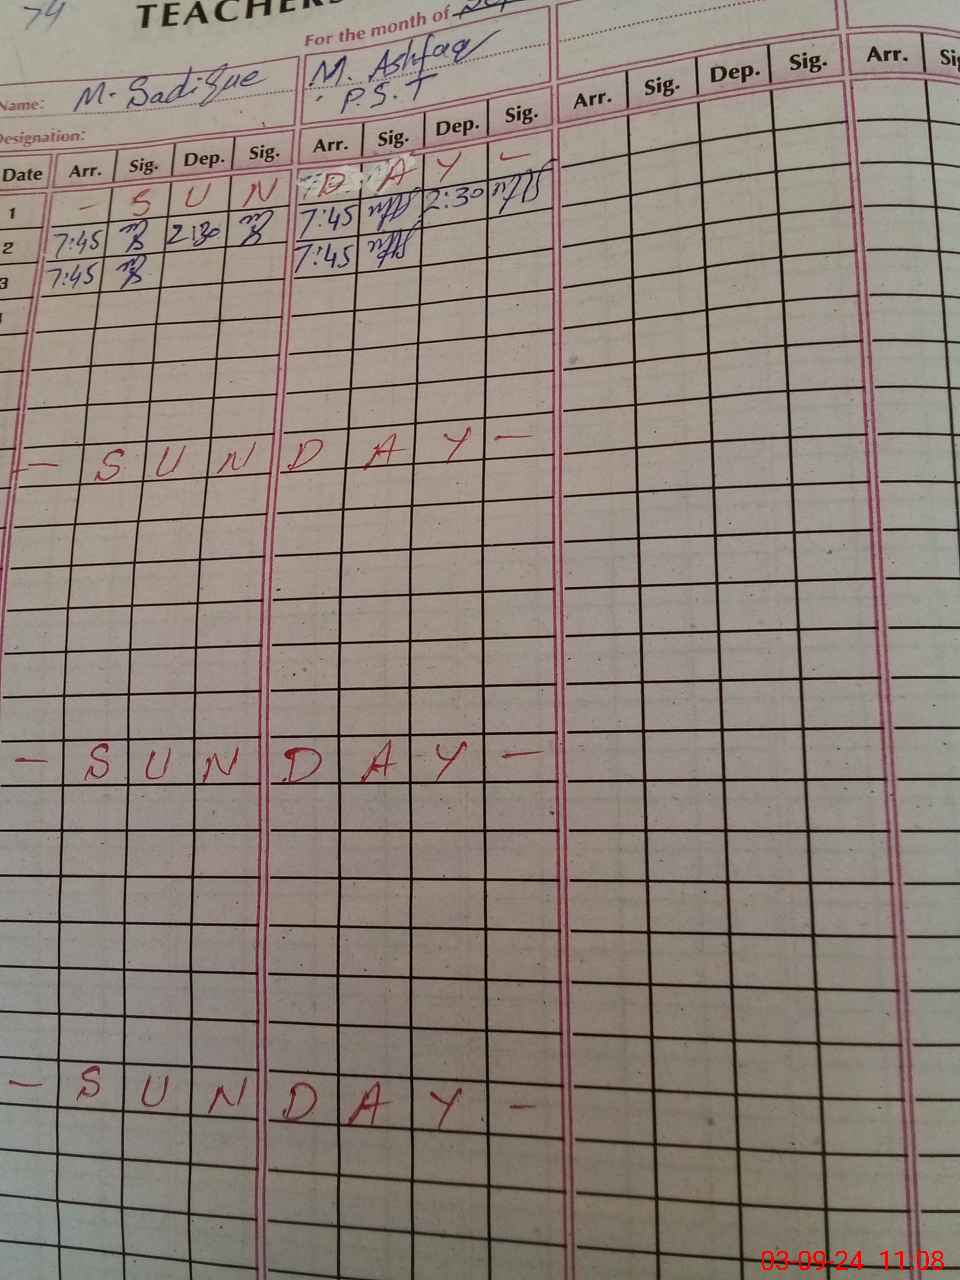 74
TEACHERS
For the month of
Name: M. Sadique M. Ashfaq
P.S.T
Designation:
Date Arr. Sig. Dep. Sig. Arr. Sig. Dep. Sig. Arr. Sig. Dep. Sig. Arr.
1 - S U N D A Y -
2 7:45 2:30 7:45 2:30
3 7:45 7:45
- S U N D A Y -
- S U N D A Y -
- S U N D A Y -
03-09-24 11:08